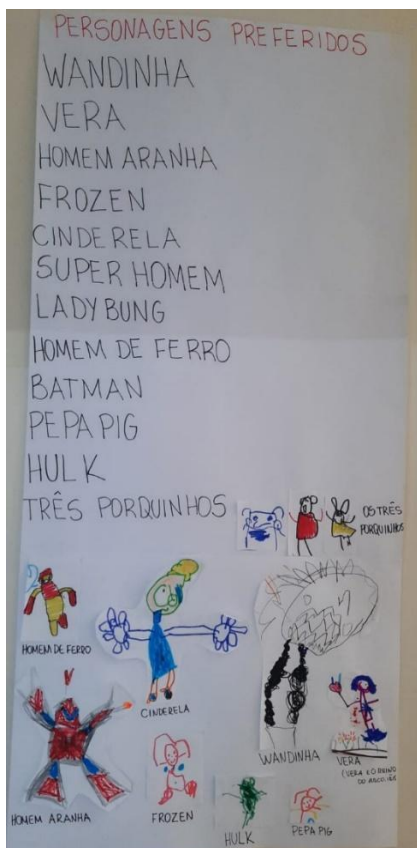 PERSONAGENS PREFERIDOS
WANDINHA
VERA
HOMEM ARANHA
FROZEN
CINDERELA
SUPER HOMEM
LADY BUNG
HOMEM DE FERRO
BATMAN
PEPA PIG
HULK
TRÊS PORQUINHOS
OS TRÊS
PORQUINHOS
HOMEM DE FERRO
CINDERELA
WANDINHA
VERA
(VERA E O REINO
DO ARCO-ÍRIS
HOMEM ARANHA
FROZEN
HULK
PEPA PIG